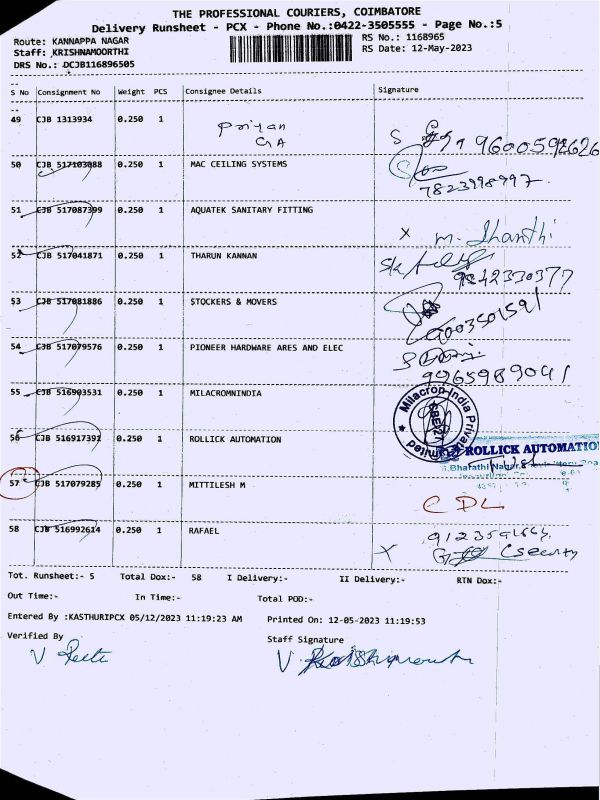 THE PROFESSIONAL COURIERS, COIMBATORE
Delivery Runsheet - PCX - Phone No.:0422-3505555 - Page No.:5
Route: KANNAPPA NAGAR
RS No.: 1168965
Staff: KRISHNAMOORTHI
RS Date: 12-May-2023
DRS No.: DCJB116896505
S No Consignment No Weight PCS Consignee Details Signature
49 CJB 1313934 0.250 1 Priyan S 9600592626
GA
50 CJB 517103088 0.250 1 MAC CEILING SYSTEMS
7823998997.
51 CJB 517087399 0.250 1 AQUATEK SANITARY FITTING
x m. Shanthi
52 CJB 517041871 0.250 1 THARUN KANNAN
9842330377
53 CJB 517081886 0.250 1 STOCKERS & MOVERS
9003501591
54 CJB 517079576 0.250 1 PIONEER HARDWARE ARES AND ELEC
9965989041
55 CJB 516903531 0.250 1 MILACROMNINDIA
Milacron India Private Limited
56 CJB 516917391 0.250 1 ROLLICK AUTOMATION
ROLLICK AUTOMATIO
Bharathi Nagar,
57 CJB 517079285 0.250 1 MITTILESH M
CDL
58 CJB 516992614 0.250 1 RAFAEL
x
Tot. Runsheet:- 5 Total Dox:- 58 I Delivery:- II Delivery:- RTN Dox:-
Out Time:- In Time:- Total POD:-
Entered By :KASTHURIPCX 05/12/2023 11:19:23 AM Printed On: 12-05-2023 11:19:53
Verified By Staff Signature